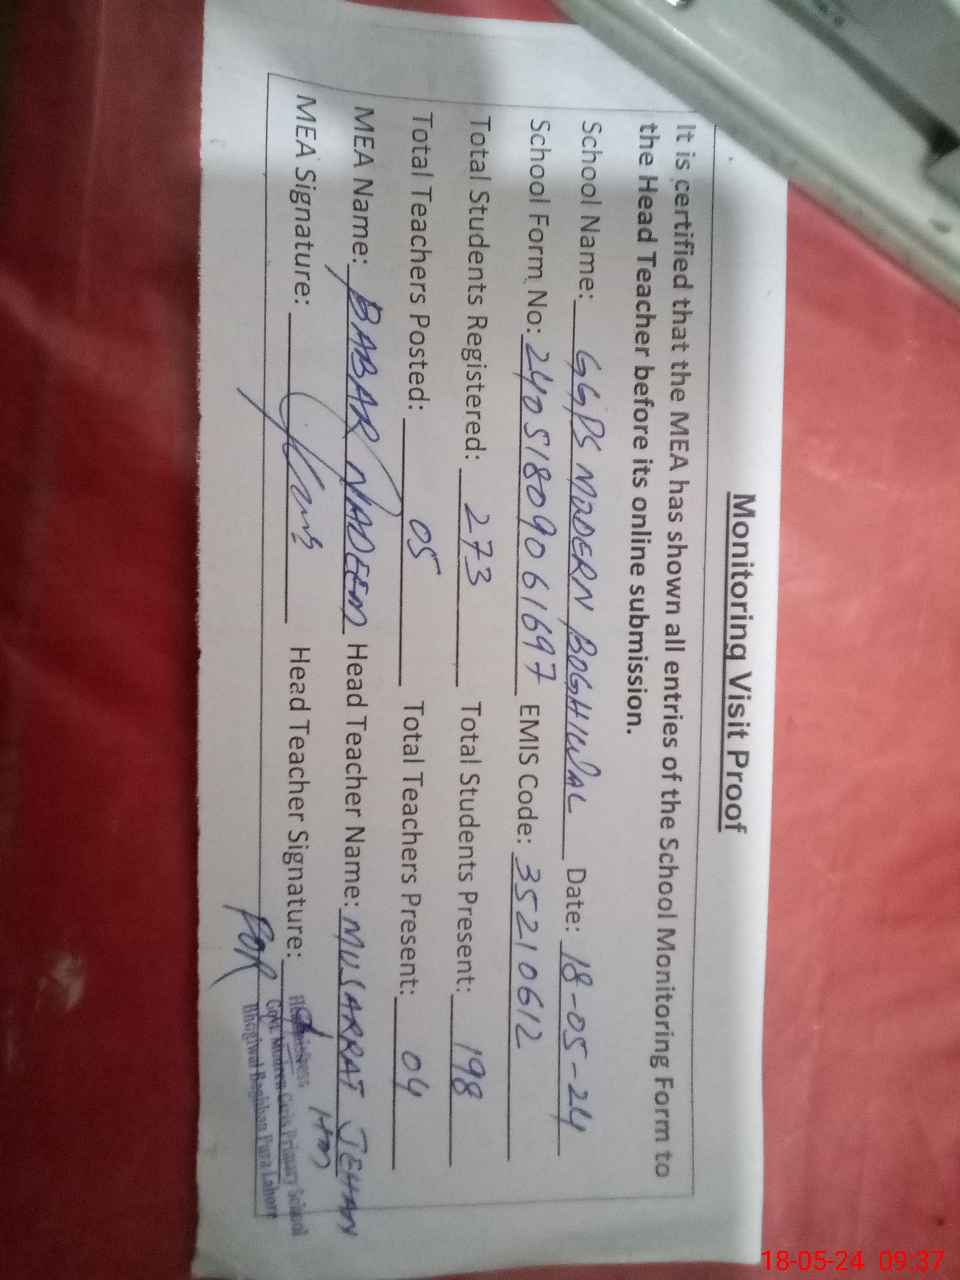 Monitoring Visit Proof
It is certified that the MEA has shown all entries of the School Monitoring Form to
the Head Teacher before its online submission.
School Name: GGPS MODERN BOGHIWAL Date: 18-05-24
School Form No: 24051809061697 EMIS Code: 35210612
Total Students Registered: 273 Total Students Present: 198
Total Teachers Posted: 05 Total Teachers Present: 04
MEA Name: BABAR NADEEM Head Teacher Name: MUSARRAT JEHAN
MEA Signature: Head Teacher Signature: HM
Govt. Modren Girls Primary School
Bhogiwal Baghban Pura Lahore
18-05-24 09:37